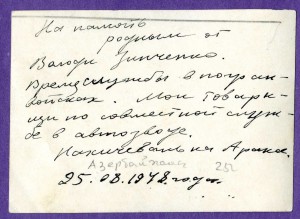 На память
родным от
Володи Зинченко.
Время службы в погран-
войсках. Мои товари-
щи по совместной служ-
бе в автовзводе.
Нахичевань на Араксе.
Азербайджан 25
25.08.1978 года.